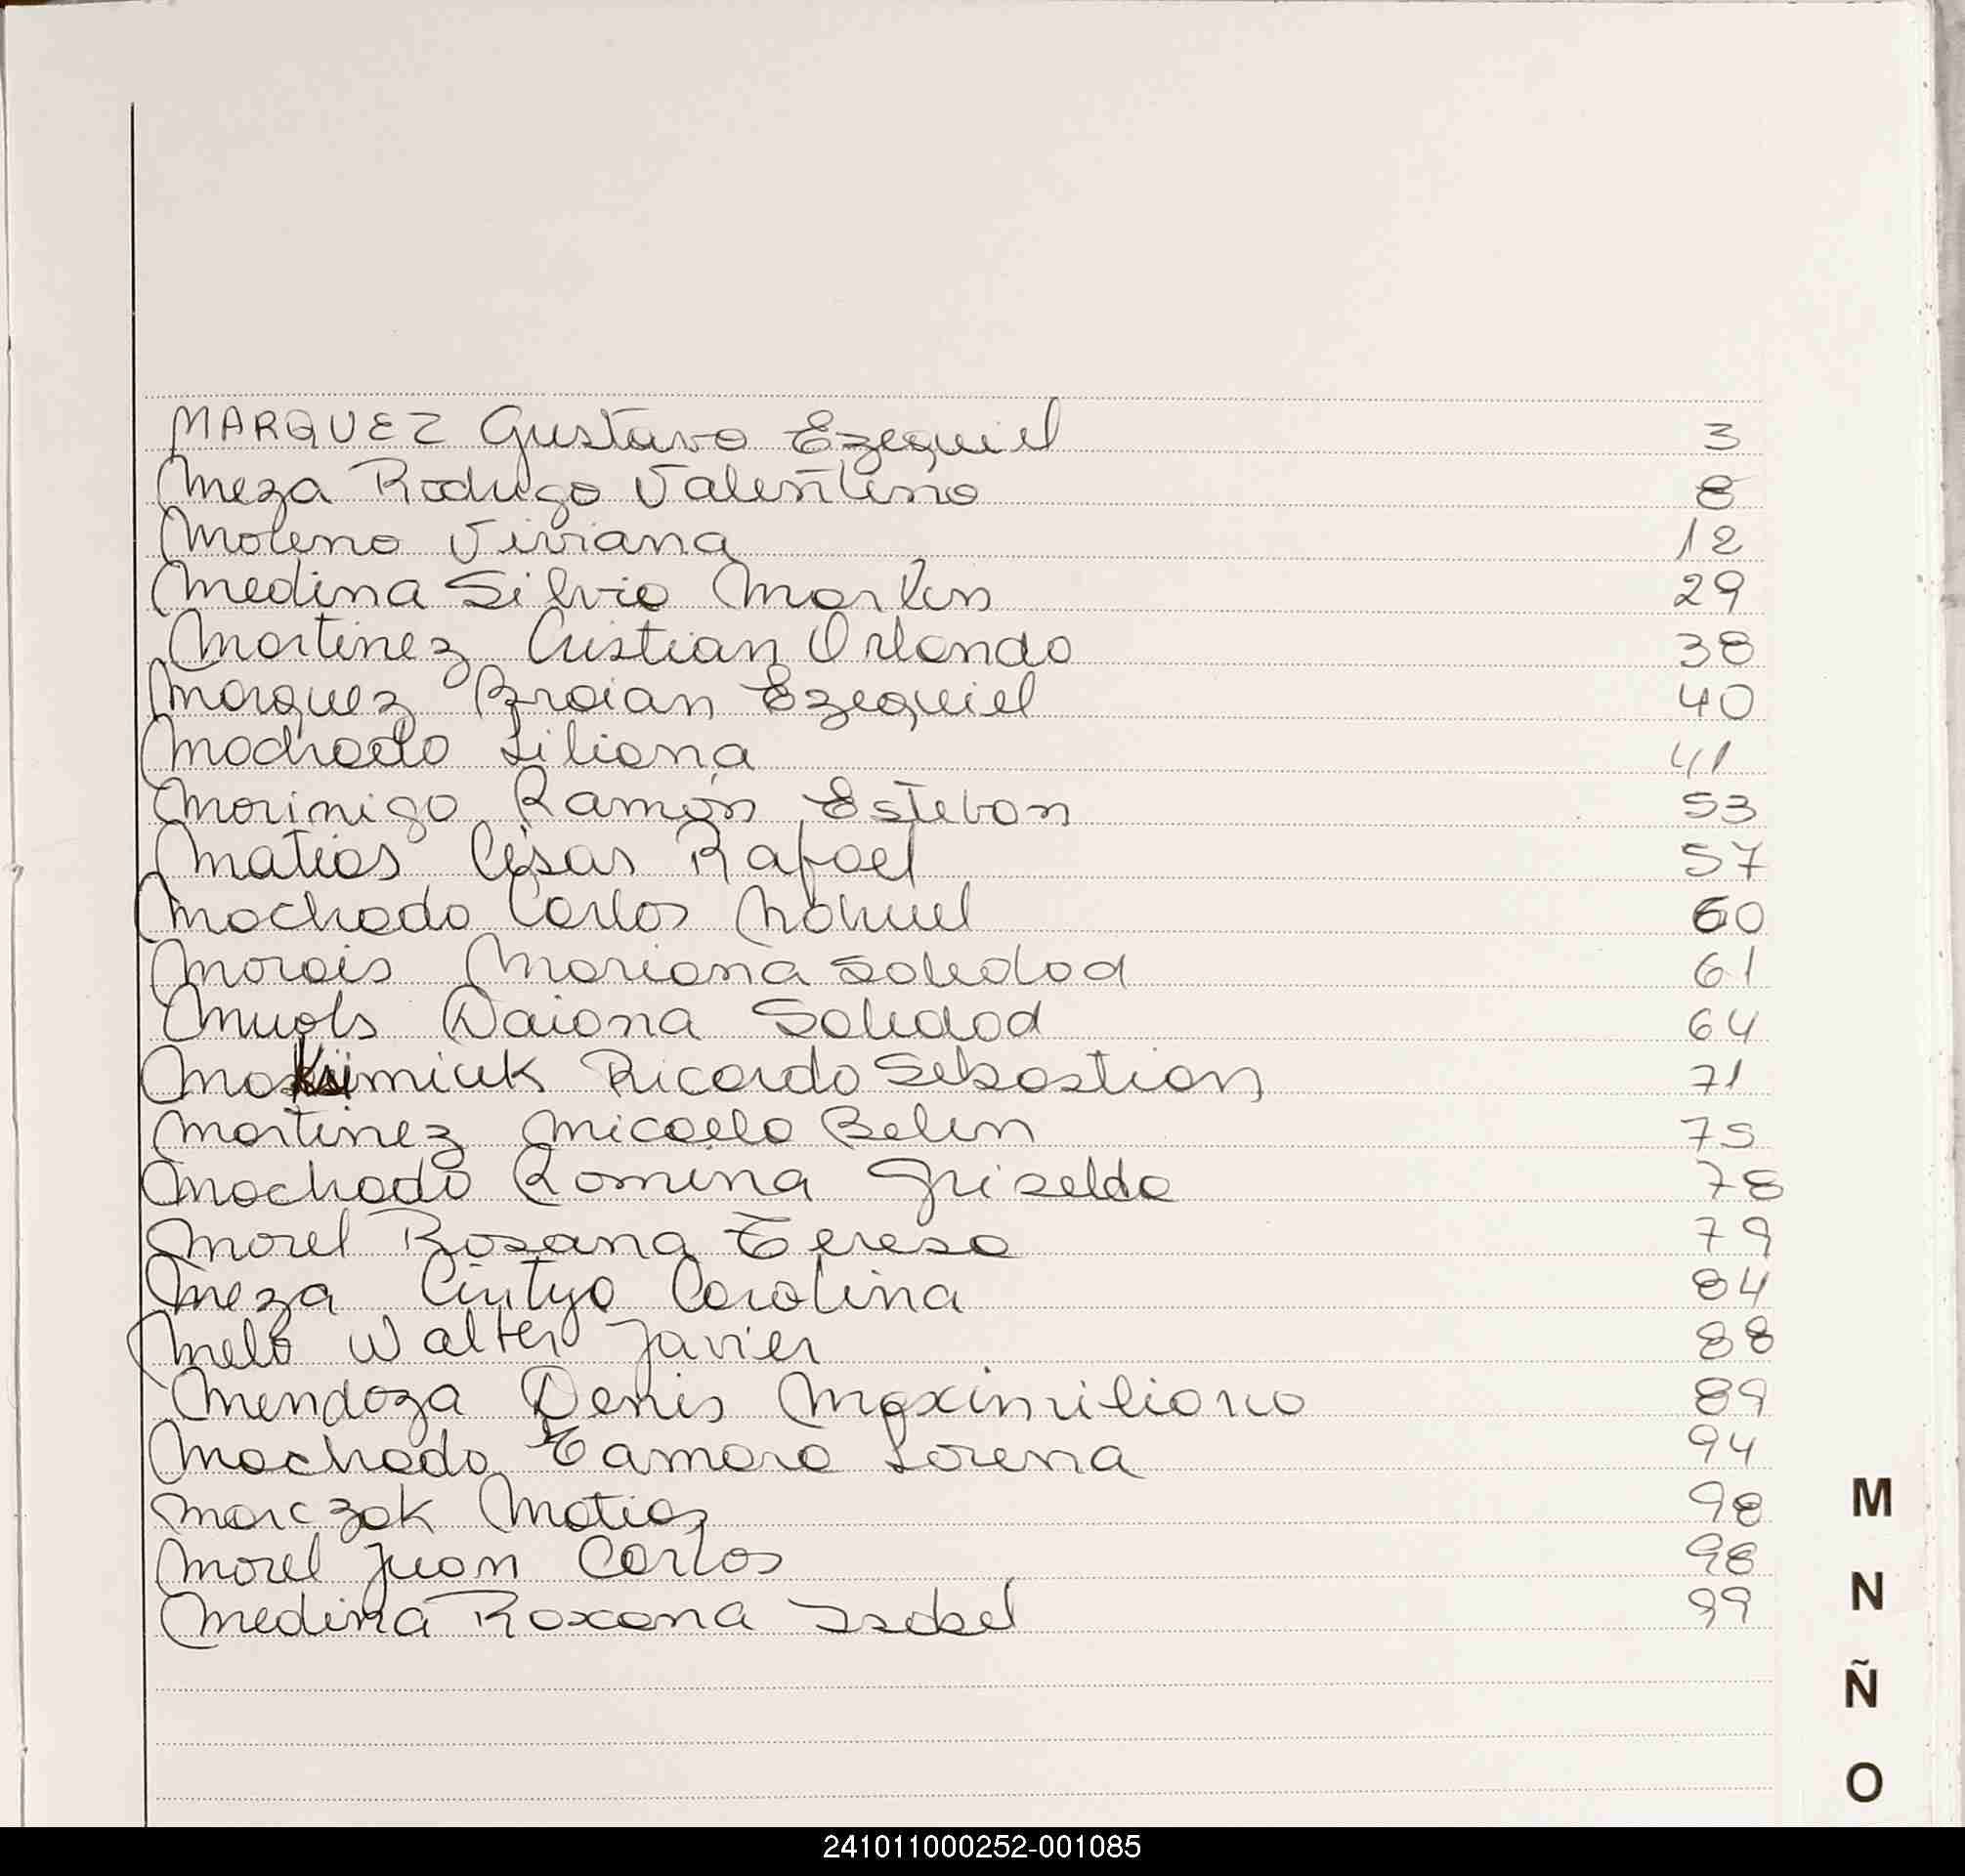 MARQUEZ Gustavo Ezequiel 3
Meza Rodrigo Valentino 8
Moreno Viviana 12
Medina Silvio Martin 29
Martinez Cristian Orlando 38
Marquez Braian Ezequiel 40
Machado Liliana 41
Morinigo Ramón Esteban 53
Matias César Rafael 57
Machado Carlos Nahuel 60
Morais Mariana Soledad 61
Daiana Soledad 64
Maksimiuk Ricardo Sebastian 71
Martinez Micaela Belen 75
Machado Romina Griselda 78
Morel Rosana Teresa 79
Meza Cintya Carolina 84
Melo Walter Javier 88
Mendoza Denis Maximiliano 89
Machado Tamara Lorena 94
Marczak Matias 98
Morel Juan Carlos 98
Medina Roxana Isabel 99
M
N
Ñ
O
241011000252-001085